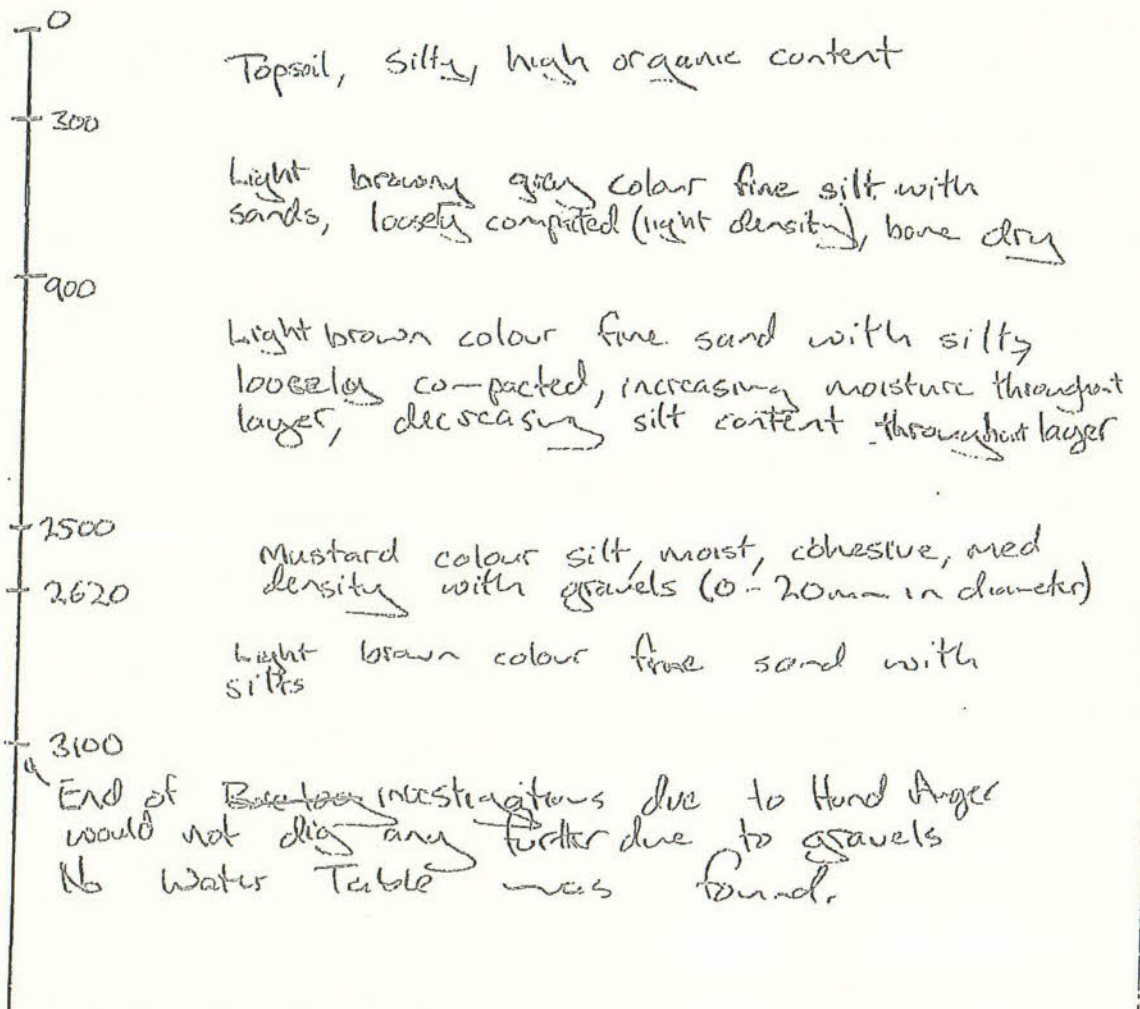 0
Topsoil, silty, high organic content
300
Light browny gray colour fine silt with
sands, loosely compacted (light density), bone dry
900
Light brown colour fine sand with silty
loosely compacted, increasing moisture throughout
layer, decreasing silt content throughout layer
2500
Mustard colour silt, moist, cohesive, med
density with gravels (0-20mm in diameter)
2620
Light brown colour fine sand with
silts
3100
End of investigations due to Hand Auger
would not dig any further due to gravels
No Water Table was found.